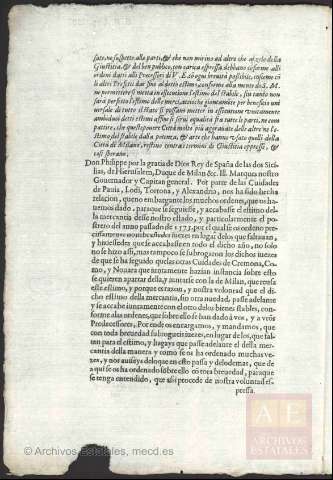 sato, ne suspetto alle parti, & che non mirino ad altro che al zelo della
Giustitia, & del ben publico, con carica espressa debbano conforme alli
ordeni dati alli Precessori di V. E. cō ogni breuità possibile, insieme cō
li altri Prefetti dar fine al detto estimo, conforme alla mente di S. M.
ne permettere si metta in essecutione l'estimo del stabile, sin tanto non
sarà perfetto l'estimo delle mercantie, che giontamēte per beneficio vni-
uersale di tutto il Stato si possano metter in essecutione vnicamente
ambiduoi detti estimi, affine si serui equalità fra tutte le parti, ne com
patire, che queste pouere Città molto più aggrauate delle altre ne l'e-
stimo del stabile dalla potenza, & arte che hanno vsato quelli della
Città di Milano, restino contra i termini di Giustitia oppresse, & da
essi sperano.
DOn Philippe por la gracia de Dios Rey de España de las dos Sicilias,
de Hierusalem, Duque de Milan &c. Ill. Marques nostro
Gouernador y Capitan general. Por parte de las Ciudades
de Pauia, Lodi, Tortona, y Alexandria, nos ha sido hecha
relacion, que no embargante los muchos ordenes, que os ha-
uemos dado, paraque se siguiesse, y accabasse el estimo del-
la mercantia desse nostro estado, y particularmente el po-
strero del anno passado de 1575. por el qual se os ordenò pre-
cissamente nombrassedes jueces en lugar de los que faltauan,
y hiuiessedes que se accabasse en todo el dicho año, no solo
no se hizo assi, mas tampoco se subrogaron los dichos jueces
de que se ha seguido que las otras Ciudades de Cremona, Co-
mo, y Nouara que iuntamente hazian instancia sobre esto
se quieren apartar della, y iuntarse con la de Milan, que reusa
este estimo, y porque es razon, y nostra voluntad que el di-
cho estimo de la mercantia, sin otra nouedad, passe adelante
y se accabe iuntamente con el otro de los bienes stables, con-
forme a las ordenes, que sobre ello se han dado à vos, y a vrōs
Predecessores. Por ende os encargamos, y mandamos, que
con toda breuedad subrogueis jueces, en lugar de los, que fal-
tan para el estimo, y hagays que passe adelante el della mer-
cantia de la manera y como se os ha ordenado muchas ve-
zes, y nos auiseys de lo que en esto passa y de lo demas, que de
a qui se os ha ordenado sobre ello cō tota breuedad, para que
se tenga entendido, que assi procede de nostra voluntad es-
pressa.
AE
ARCHIVOS
ESTATALES
© Archivos Estatales, mecd.es